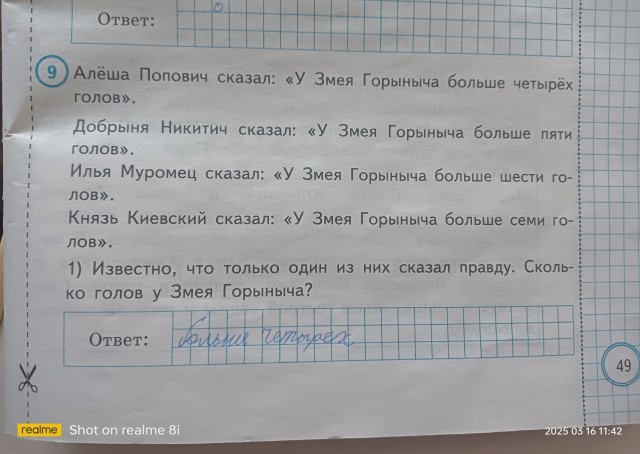 Ответ:
9 Алёша Попович сказал: «У Змея Горыныча больше четырёх
голов».
Добрыня Никитич сказал: «У Змея Горыныча больше пяти
голов».
Илья Муромец сказал: «У Змея Горыныча больше шести го-
лов».
Князь Киевский сказал: «У Змея Горыныча больше семи го-
лов».
1) Известно, что только один из них сказал правду. Сколь-
ко голов у Змея Горыныча?
Ответ: больше четырех
49
realme Shot on realme 8i
2025 03 16 11:42